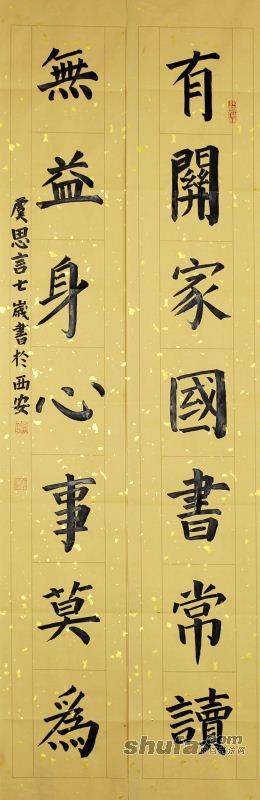 有關家國書常讀
無益身心事莫為
虞思言七歲書於西安
shufa